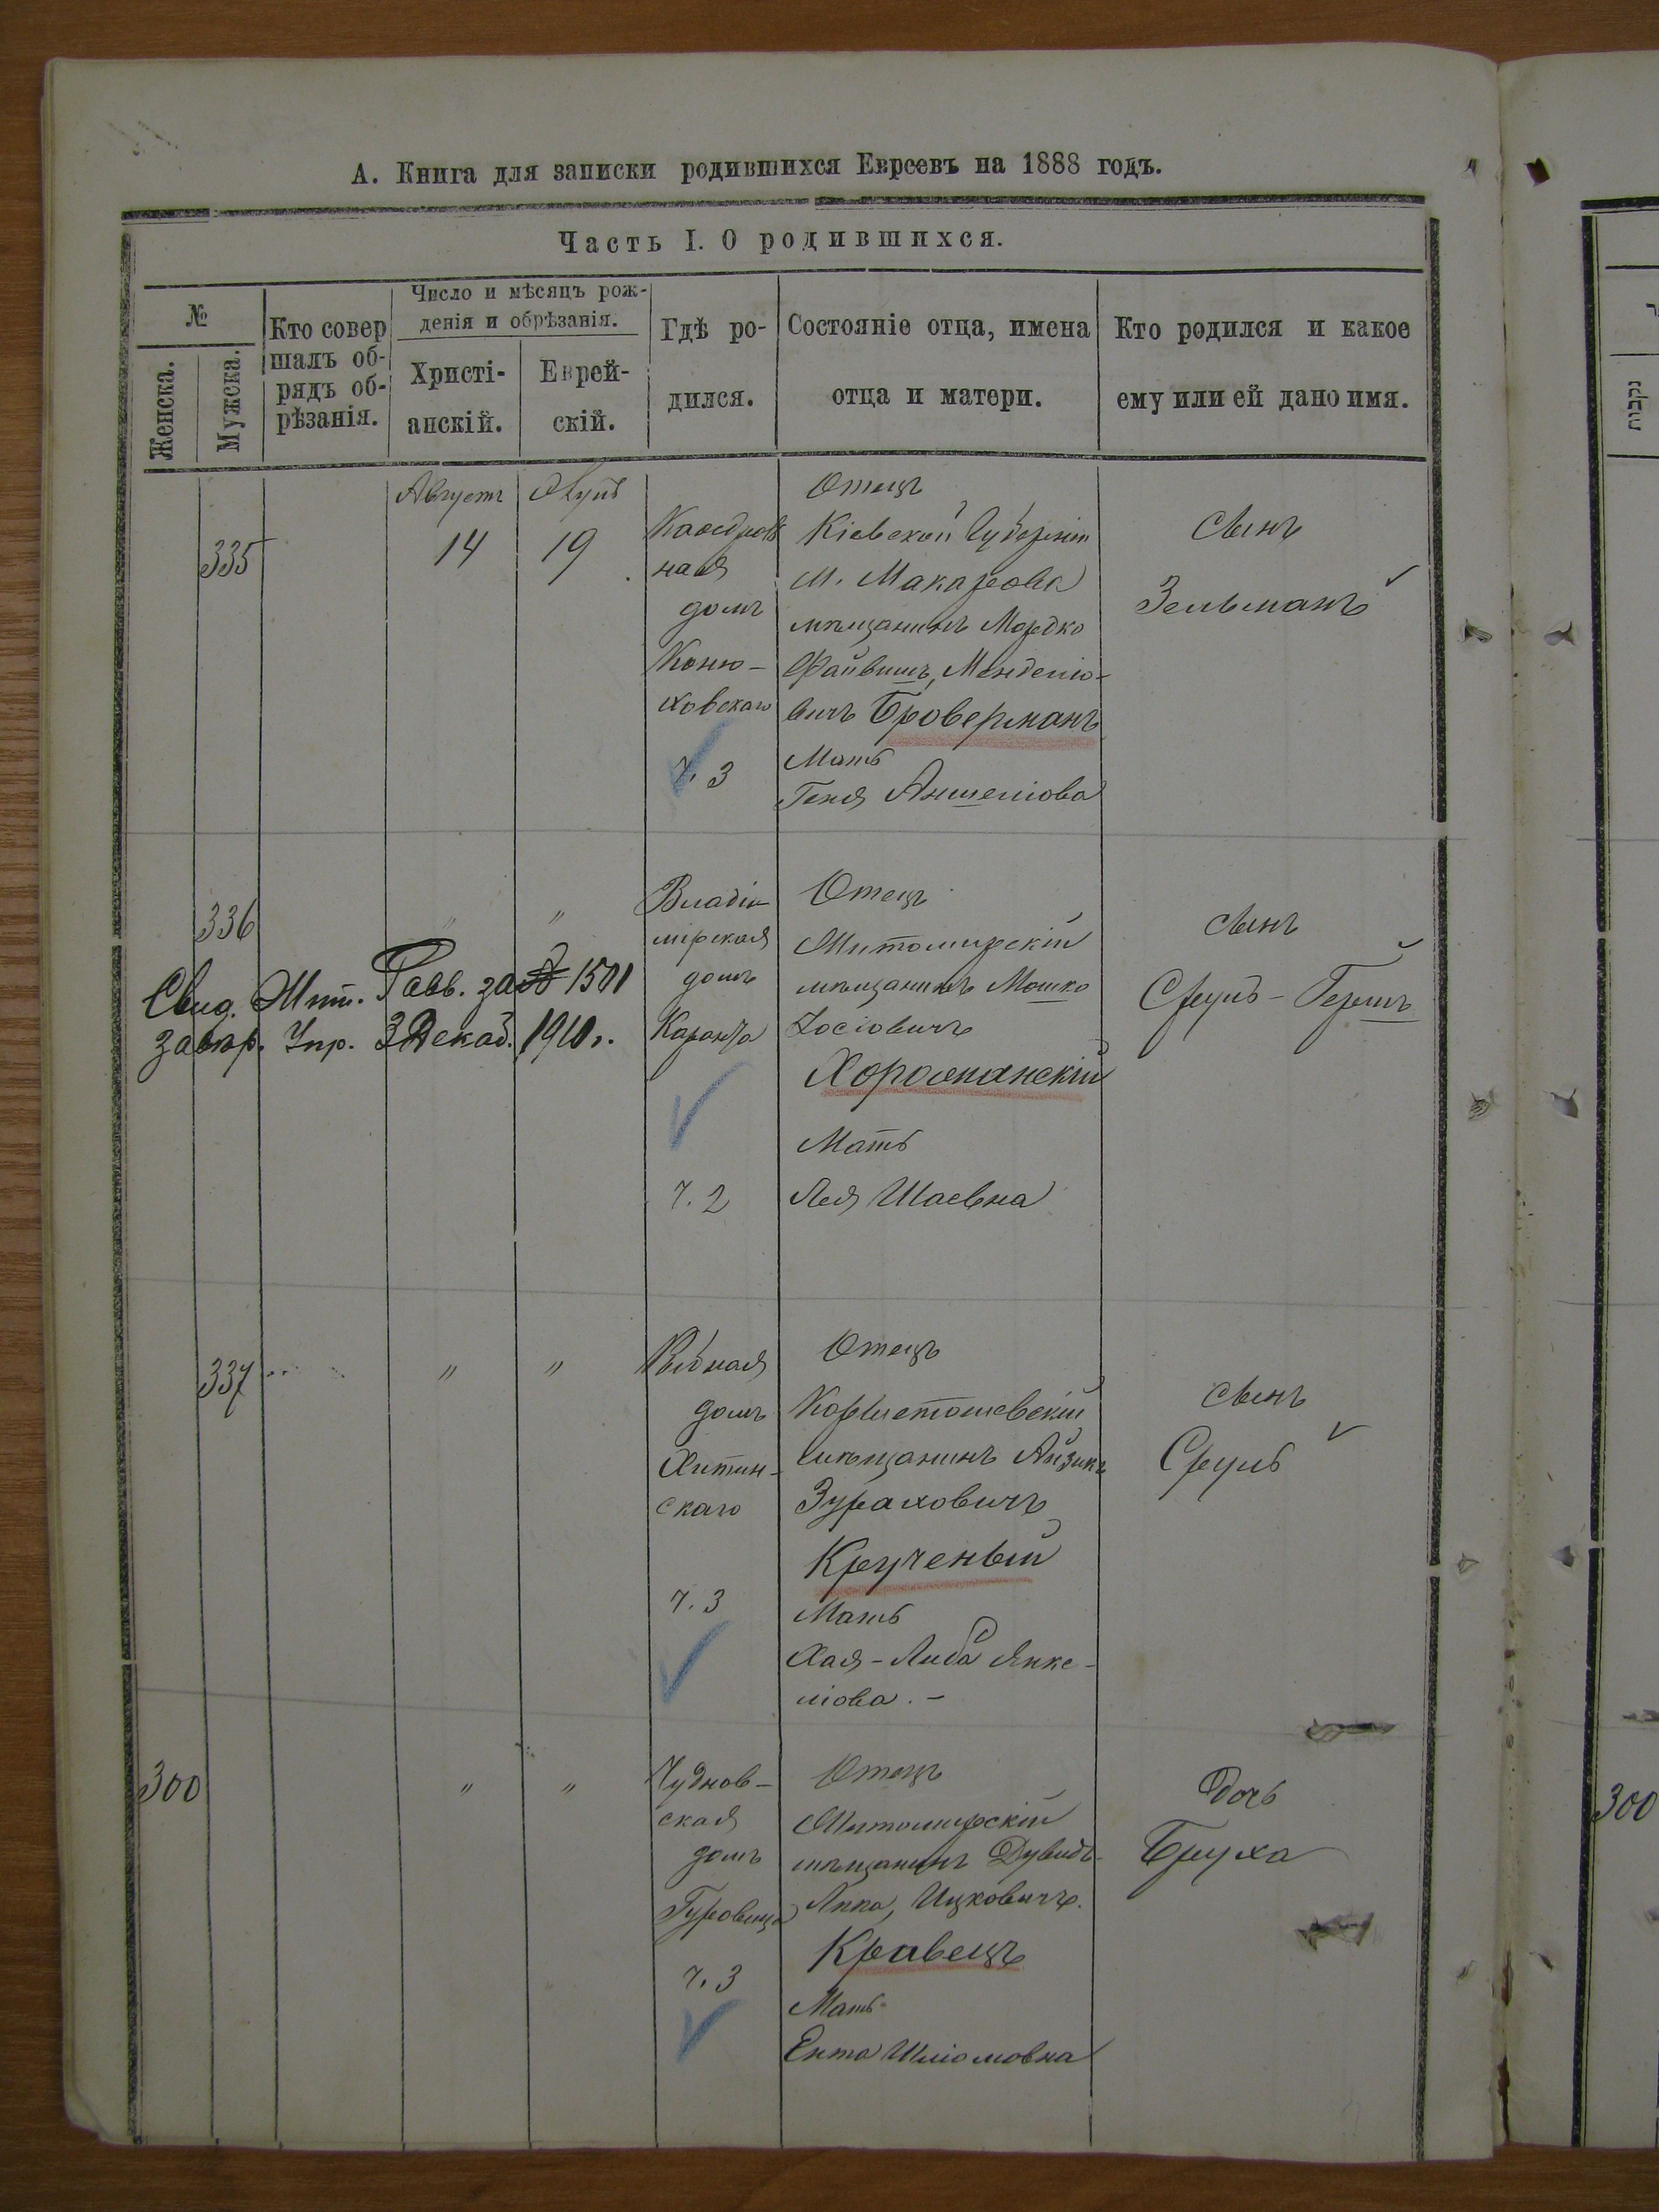 А. Книга для записки родившихся Евреевъ на 1888 годъ.
Часть I. О родившихся.
№
Женска.
Мужска.
Кто совер
шалъ об-
рядъ об-
рѣзанія.
Число и мѣсяцъ рож-
денія и обрѣзанія.
Христі-
анскій.
Еврей-
скій.
Гдѣ ро-
дился.
Состояніе отца, имена
отца и матери.
Кто родился и какое
ему или ей дано имя.
335
Августъ
14
19
ная
домъ
Коню-
ховскаго
ч. 3
Отецъ
Кіевской Губерніи
М. Макарова
мѣщанинъ Мордко
Файвишъ, Менделіо-
вичъ Броверманъ
Мать
Геня Аншеліова
Сынъ
Зельманъ
336
"
"
Свид. Жит. Равв. за № 1501
Упр. 3 Декаб. 1910 г.
Владим
мірская
домъ
ч. 2
Отецъ
Житомирскій
мѣщанинъ Мошко
Іосіовичъ
Мать
Лея Шаевна
Сынъ
Сруль-Гершъ
337
"
"
домъ
Хитин-
скаго
ч. 3
Отецъ
Коростышевскій
мѣщанинъ Айзикъ
Зураховичъ
Крученый
Мать
Хая-Либа Янке-
ліова.-
Сынъ
Сруль
300
"
"
Чуднов-
ская
домъ
Гуровица
ч. 3
Отецъ
Житомирскій
мѣщанинъ Дувидъ-
Липа, Ицковичъ.
Кравецъ
Мать
Ента Шліомовна
Дочь
Бруха
נקבות
300